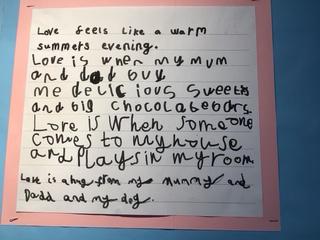 Love feels like a warm
summers evening.
Love is when my mum
and dad buy
me delicious sweets
and big chocolabeoars.
Love is when someone
comes to my house
and plays in my room
Love is a hug from my mummy and
Dadd and my dog.